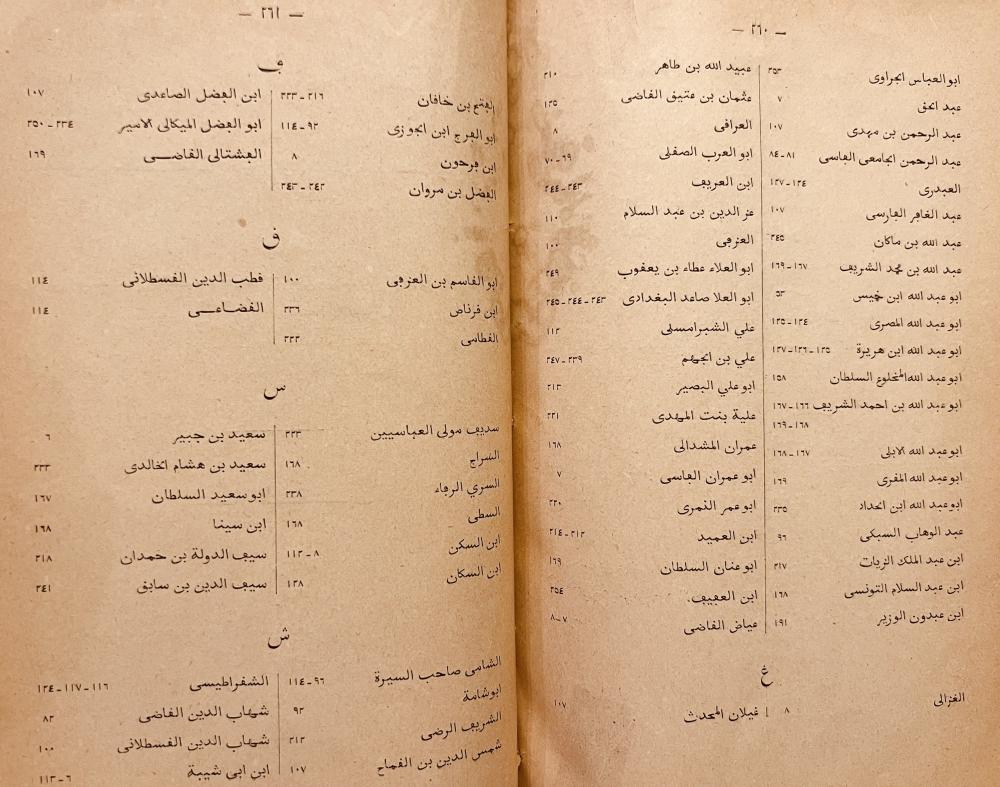 — ٢٦٠ —
ابو العباس الجراوى ٢٥٣
عبد الحق ٧
عبد الرحمن بن مهدى ١٠٧
عبد الرحمن الجامعى الفاسى ٨١-٨٤
العبدرى ١٢٤-١٢٧
عبد الغافر الفارسى ١٠٧
عبد الله بن ماكان ٢٤٥
عبد الله بن محمد الشريف ١٦٧-١٦٩
ابو عبد الله ابن خميس ٥٣
ابو عبد الله المصرى ١٢٤-١٢٥
ابو عبد الله ابن هريرة ١٢٥-١٢٦-١٢٧
ابو عبد الله المخلوع السلطان ١٥٨
ابو عبد الله بن احمد الشريف ١٦٦-١٦٧
١٦٨-١٦٩
ابو عبد الله الابلى ١٦٧-١٦٨
ابو عبد الله المقرى ١٦٩
ابو عبد الله ابن الحداد ٢٣٥
عبد الوهاب السبكى ٩٦
ابن عبد الملك الزيات ٢١٧
ابن عبد السلام التونسى ١٦٨
ابن عبدون الوزير ١٩١
عبيد الله بن طاهر ٢١٠
عثمان بن عتيق القاضى ١٢٥
العراقى ٨
ابو العرب الصقلى ٦٩-٧٠
ابن العريف ٢٤٣-٢٤٤
عز الدين بن عبد السلام ١١٠
العزفى ١٠٠
ابو العلاء عطاء بن يعقوب ٢٤٩
ابو العلا صاعد البغدادى ٢٤٣-٢٤٤-٢٤٥
علي الشبرامسلى ١١٢
علي بن الجهم ٢٣٩-٢٤٧
ابو علي البصير ٢١٣
علية بنت المهدى ٢٢١
عمران المشدالى ١٦٨
ابو عمران الفاسى ٧
ابو عمر النمرى ٢٢٠
ابن العميد ٢١٣-٢١٤
ابو عنان السلطان ١٦٩
ابن العفيف ٢٥٤
عياض القاضى ٧-٨
غ
الغزالى ٨
غيلان المحدث ١٠٧
— ٢٦١ —
ف
الفتح بن خاقان ٢١٦-٢٣٣
ابو الفرج ابن الجوزى ٩٢-١١٤
ابن فرحون ٨
الفضل بن مروان ٢٤٢-٢٤٣
ابن الفضل الصاعدى ١٠٧
ابو الفضل الميكالى الامير ٢٣٤-٢٥٠
الفشتالى القاضى ١٦٩
ق
ابو القاسم بن العزفى ١٠٠
ابن قرناص ٢٣٦
القطامى ٢٣٣
قطب الدين القسطلانى ١١٤
القضاعى ١١٤
س
سديف مولى العباسيين ٢٣٣
السراج ١٦٨
السري الرفاء ٢٣٨
السطى ١٦٨
ابن السكن ٨-١١٢
ابن السكان ١٢٨
سعيد بن جبير ٦
سعيد بن هشام الخالدى ٢٣٣
ابو سعيد السلطان ١٦٧
ابن سينا ١٦٨
سيف الدولة بن حمدان ٢١٨
سيف الدين بن سابق ٢٤١
ش
الشامى صاحب السيرة ٩٦-١١٤
ابو شامة ٩٢
الشريف الرضى ٢١٢
شمس الدين بن القماح ١٠٧
الشقراطيسى ١١٦-١١٧-١٢٤
شهاب الدين القاضى ٨٢
شهاب الدين القسطلانى ١٠٠
ابن ابى شيبة ٦-١١٣